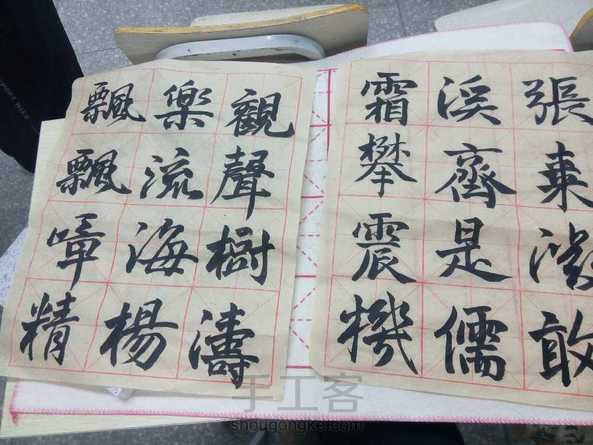 飄樂觀
飄流聲
海樹
精楊濤
霜溪張
攀齊
震是
機儒敢
手工客
shougongke.com